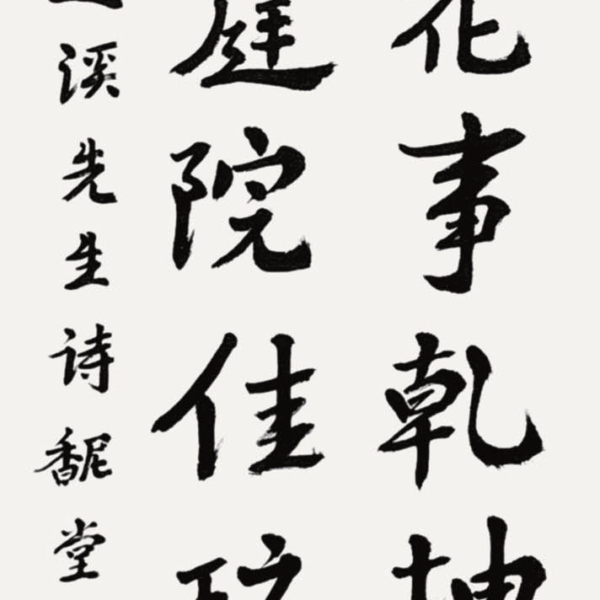 花事乾坤
庭院佳
溪先生诗馜堂